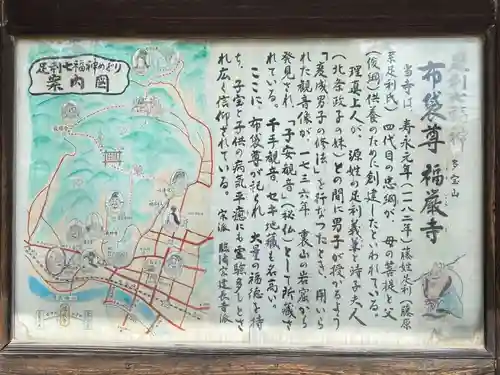 足利七福神
多宝山
布袋尊 福厳寺
当寺は、寿永元年(一一八二年)藤姓足利(藤原
系足利氏)四代目の忠綱が、母の菩提と父
(俊綱)供養のために創建したといわれている。
理真上人が、源姓の足利義兼と時子夫人
(北条政子の妹)との間に男子が授かるよう
「変成男子の修法」を行なったとき、用いら
れた観音像が一七三六年 裏山の岩窟から
発見され、「子安観音」(秘仏)として所蔵さ
れている。 千手観音、セキ地蔵も名高い。
ここに、布袋尊が祀られ 大量の福徳を持
ち、宝と子供の病気平癒にも霊験多しとさ
れ広く信仰されている。 宗派 臨済宗建長寺派
足利七福神めぐり
案内図